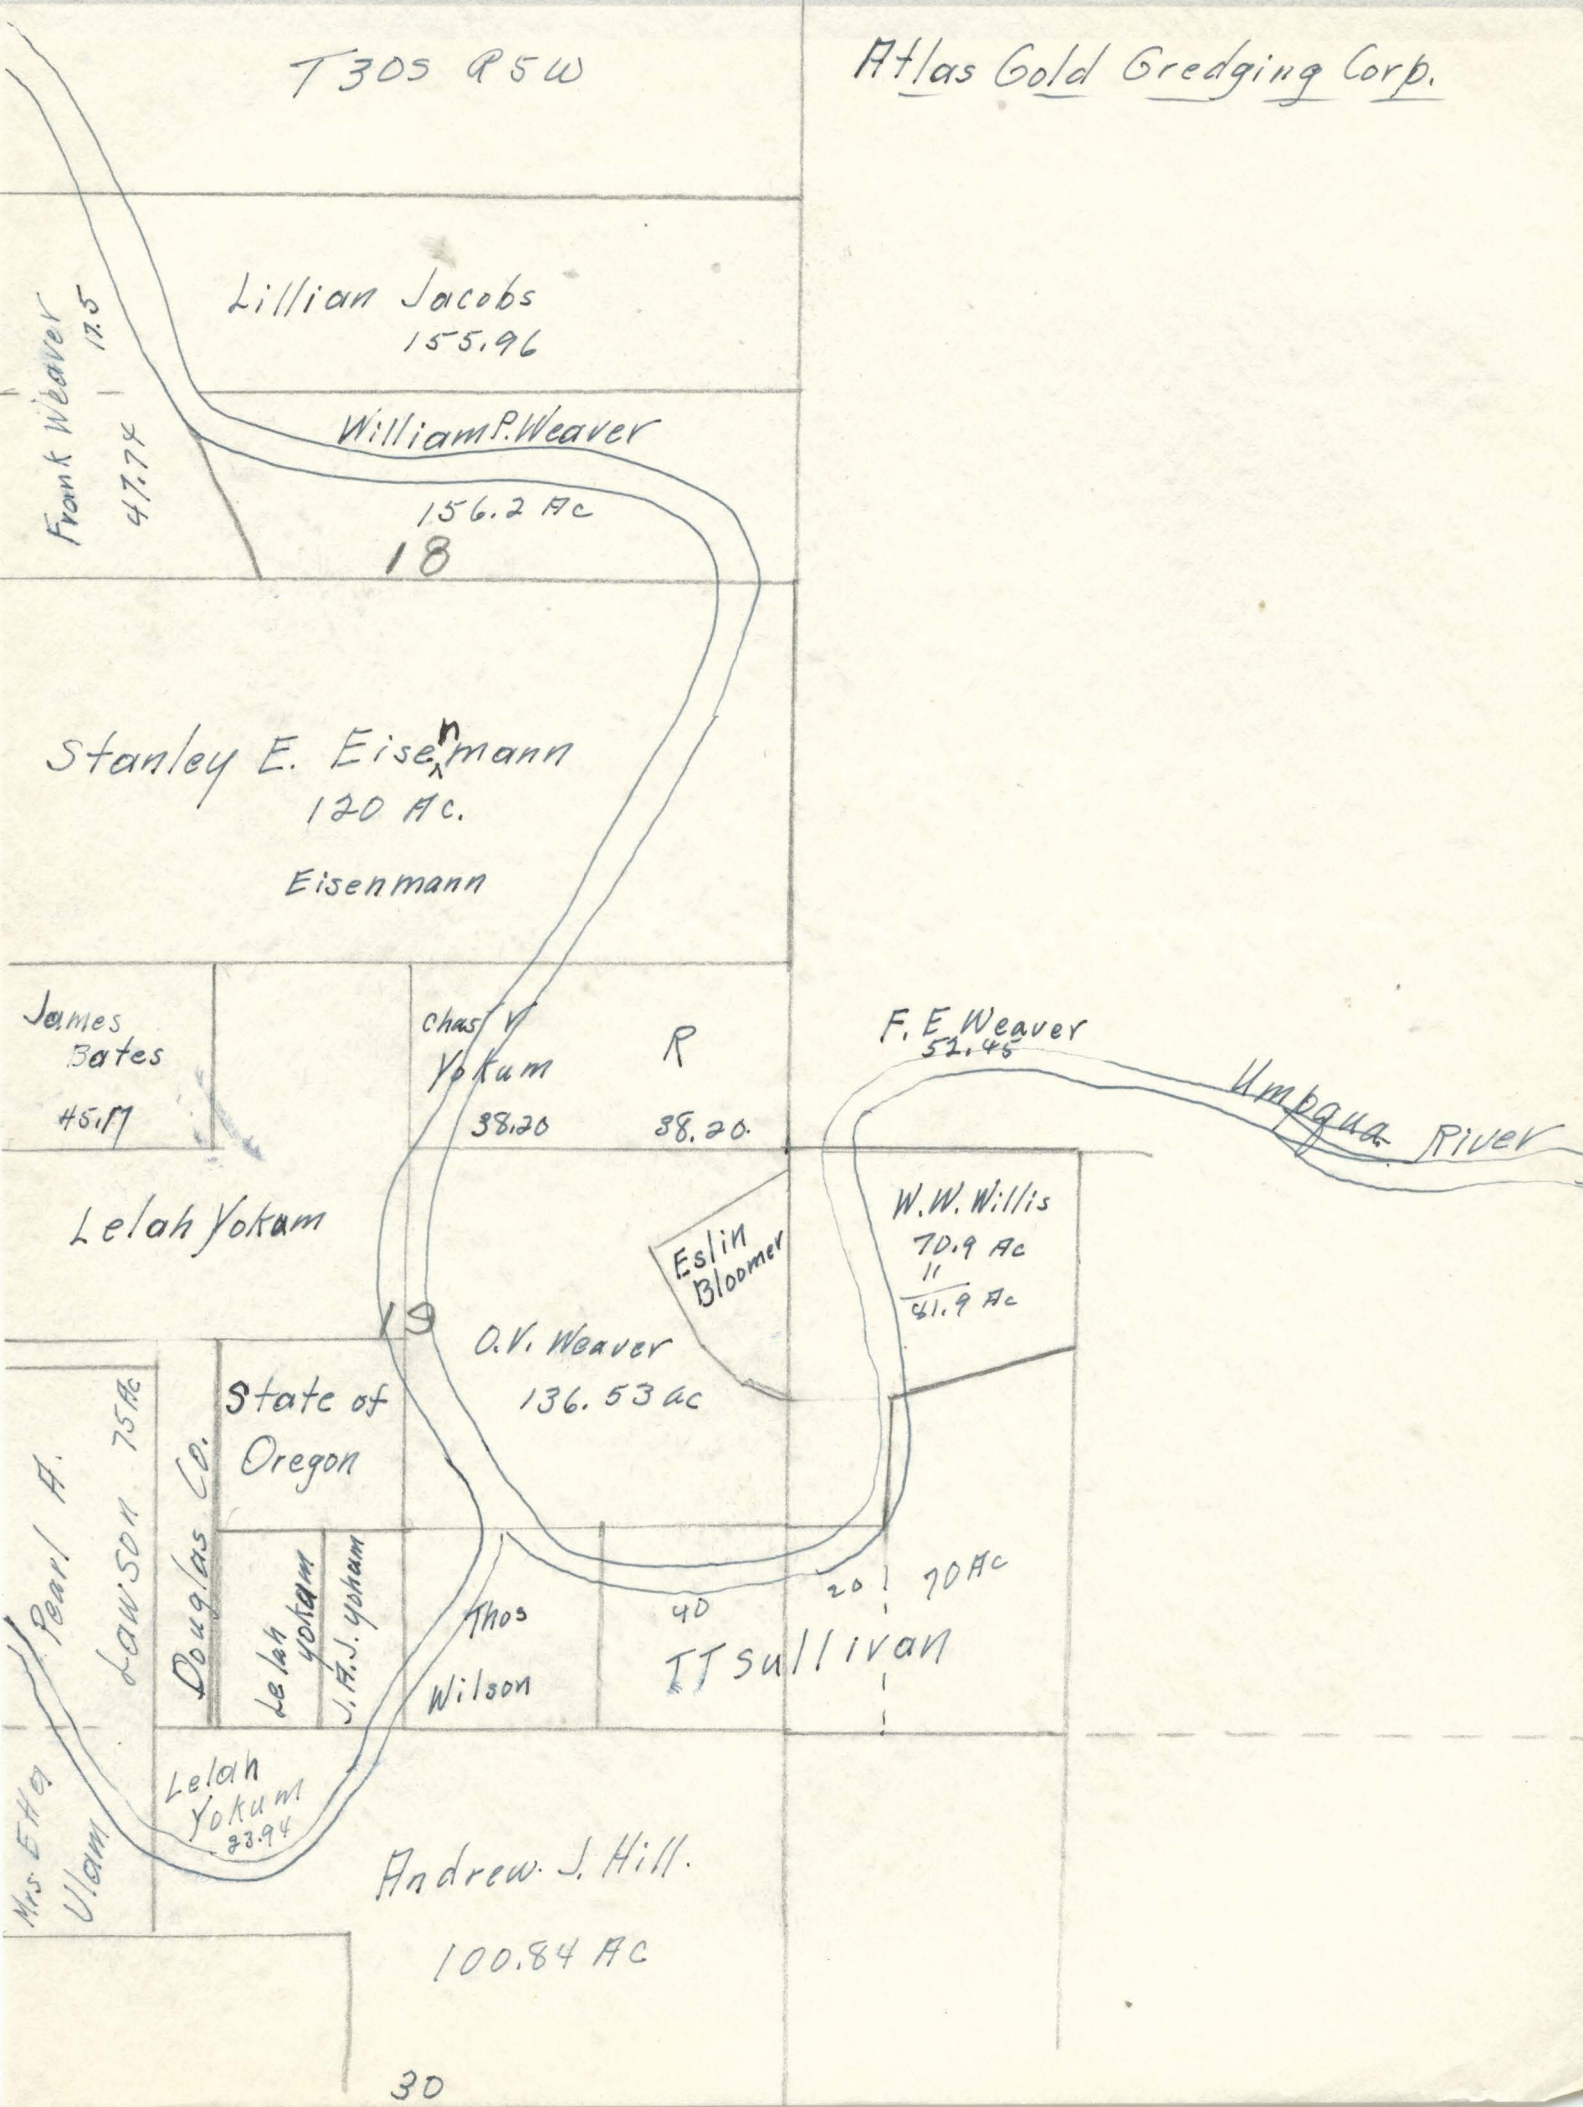 T30S R5W
Atlas Gold Gredging Corp.
Lillian Jacobs
155.96
Frank Weaver
17.5
47.74
William P. Weaver
156.2 Ac
18
Stanley E. Eisenmann
120 Ac.
Eisenmann
James
Bates
45.17
Chas V
Yokum
38.20
R
38.20
F. E. Weaver
52.45
Umpqua River
Lelah Yokum
Eslin
Bloomer
W. W. Willis
70.9 Ac
11
81.9 Ac
19
O.V. Weaver
136.53 ac
State of
Oregon
Pearl A.
Lawson 75 Ac
Douglas Co.
Lelah
Yokam
J.A.J. Yokam
Thos
Wilson
40
20
70 Ac
TT Sullivan
Lelah
Yokum
23.94
Mrs Etta
Ulam
Andrew. J. Hill.
100.84 AC
30